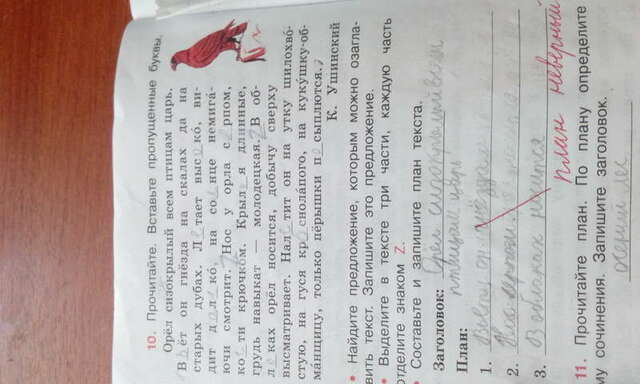 10. Прочитайте. Вставьте пропущенные буквы.
Орёл сизокрылый всем птицам царь.
В ёт он гнёзда на скалах да на
старых дубах. Л тает выс кó, ви-
дит д л кó, на со нце немигá-
ючи смотрит. Нос у орла с рпом,
ког ти крючком. Крыл я длинные,
грудь навыкат — молодецкая. В об-
л ках орёл носится, добычу сверху
высматривает. Нал тит он на утку шилохвó-
стую, на гуся кр снолапого, на кукушку-об-
мáнщицу, только пёрышки п сыплются.
К. Ушинский
• Найдите предложение, которым можно озагла-
вить текст. Запишите это предложение.
• Выделите в тексте три части, каждую часть
отделите знаком Z.
• Составьте и запишите план текста.
Заголовок: Орёл сизокрылый всем
птицам царь
План:
1.
2.
3. В облаках носится
план неверный
11. Прочитайте план. По плану определите
му сочинения. Запишите заголовок.
лес